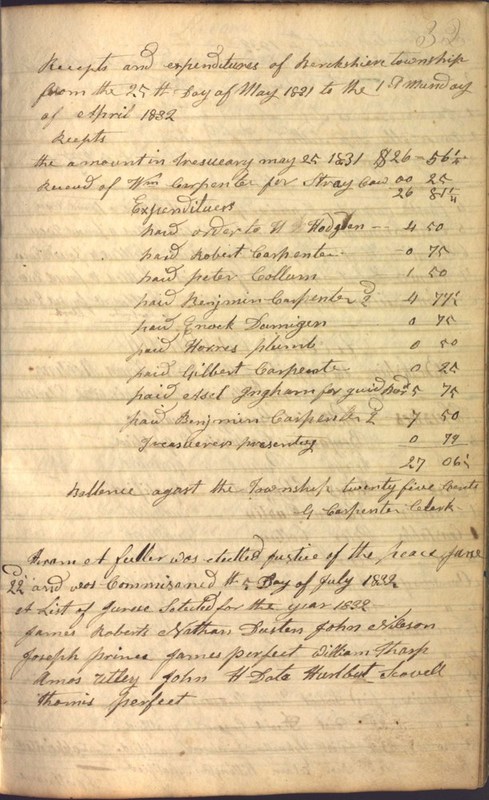 32
Recepts and expenditures of Berckshire township
from the 25th Day of May 1831 to the 1st Munday
of April 1832
Recepts
the amount in tresueary may 25 1831 $26 - 56¼
Receved of Wm Carpenter for Stray Cow 00 25
26 81¼
Expendituers
paid order to H Hodgden -- 4 50
paid Robert Carpenter - 0 75
paid peter Collum 1 50
paid Benjmin Carpenter 2d 4 77½
paid Enock Domigen 0 75
paid Horres plumb 0 50
paid Gilbert Carpenter 0 25
paid Asel Ingham for guid Bods 5 75
paid Benjmin Carpenter 2d 7 50
Treasuerer presenteg 0 79
27 06¼
Ballence agast the Township twenty five Cents
G Carpenter Clerk
Hiram A fuller was elected justice of the peace June
22d and was Commisaned the 5 Day of July 1832
A List of Juree Selected for the year 1832
James Roberts Nathan Dusten John Nilsson
Joseph prince James perfect William Tharp
Amos Utley John H Data Hurlbut Scovell
thomis perfect